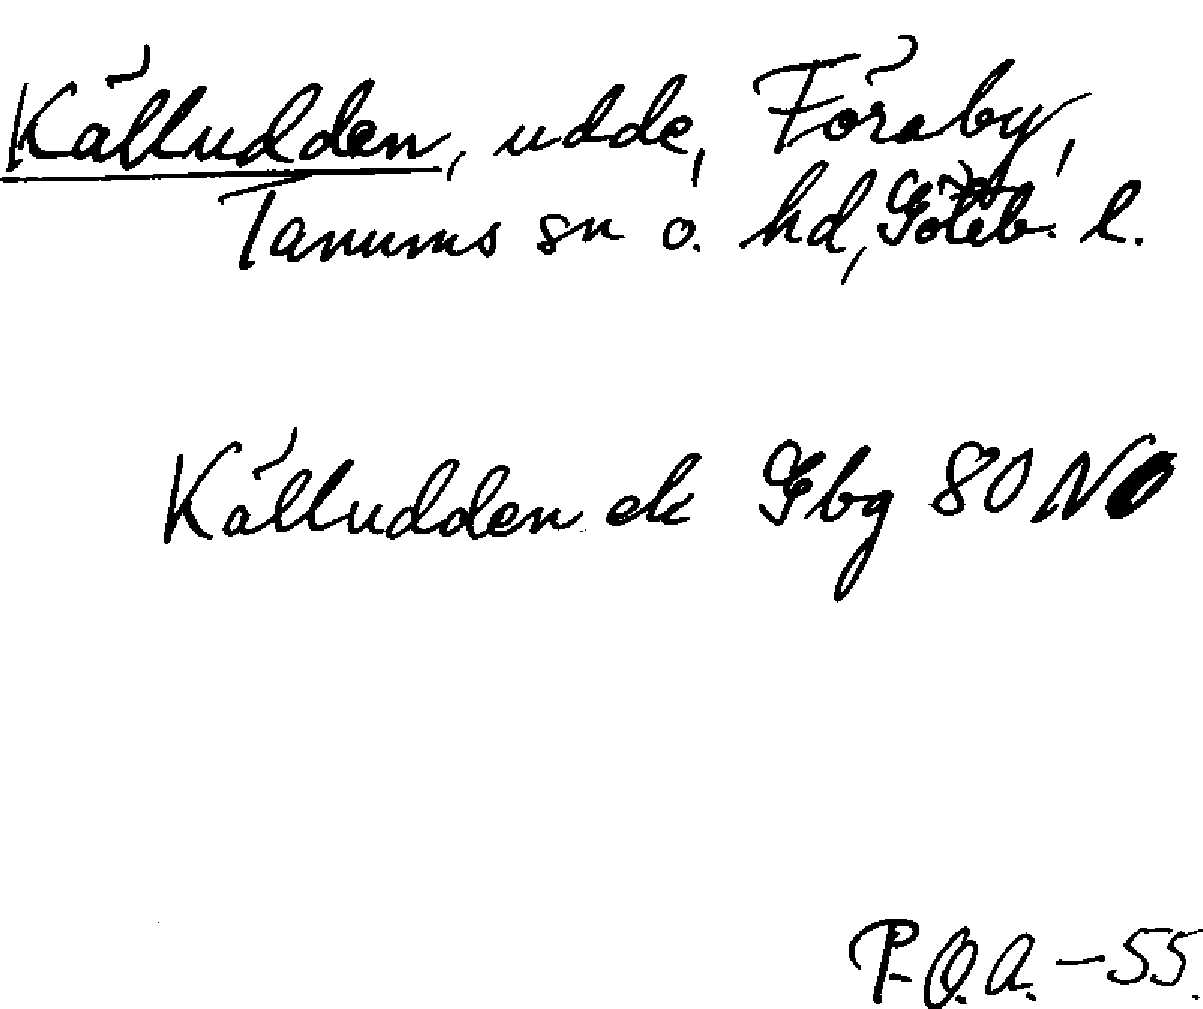 Källudden, udde, Föraby,
Tanums sn o. hd, Göteb. l.
Källudden ek Gbg 80 NO
P.O.A. – 55.